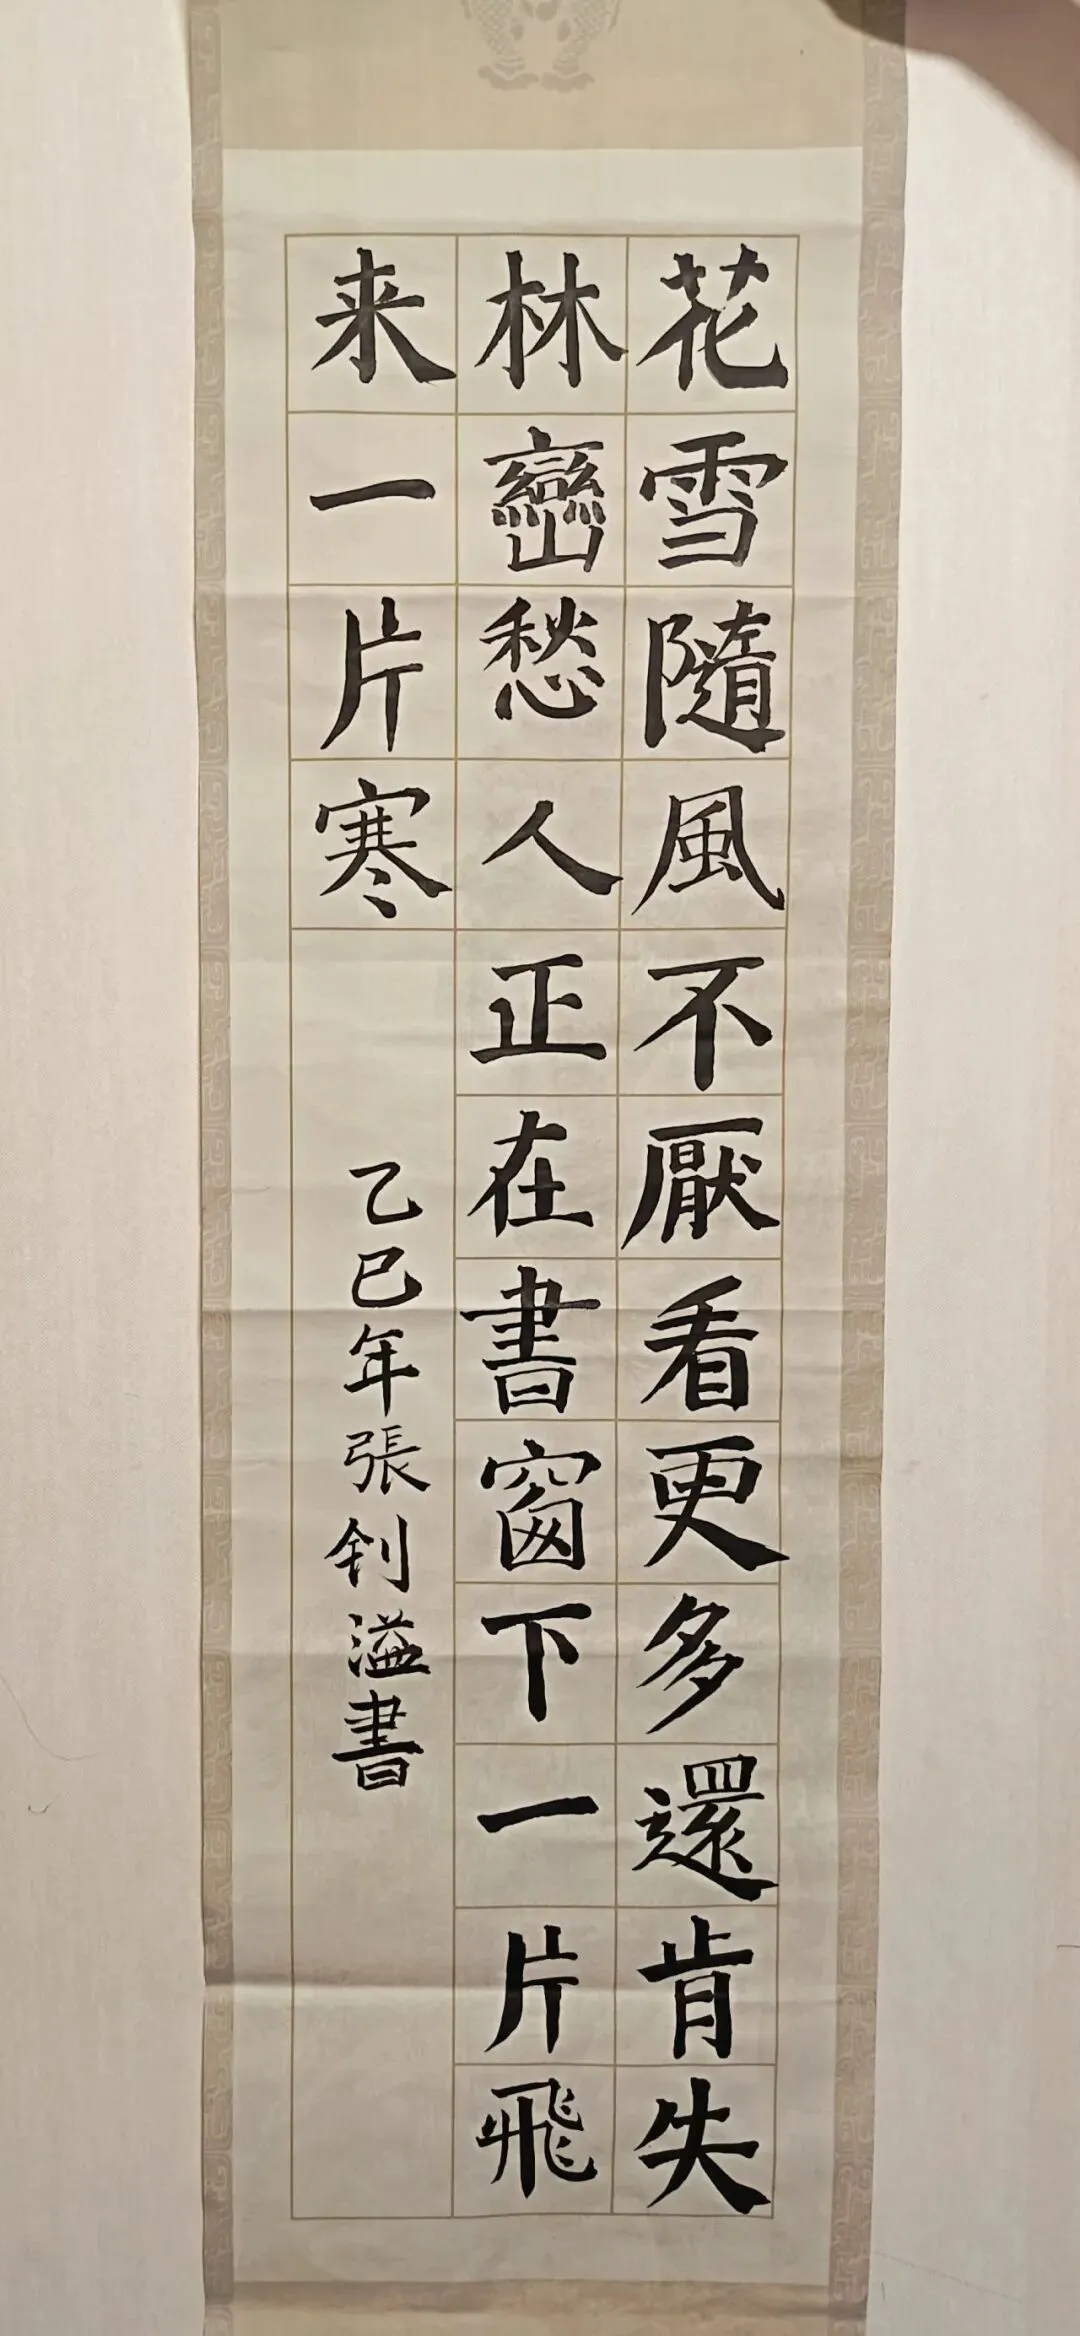 花雪隨風不厭看更多還肯失
林巒愁人正在書窗下一片飛
来一片寒
乙巳年張钊溢書